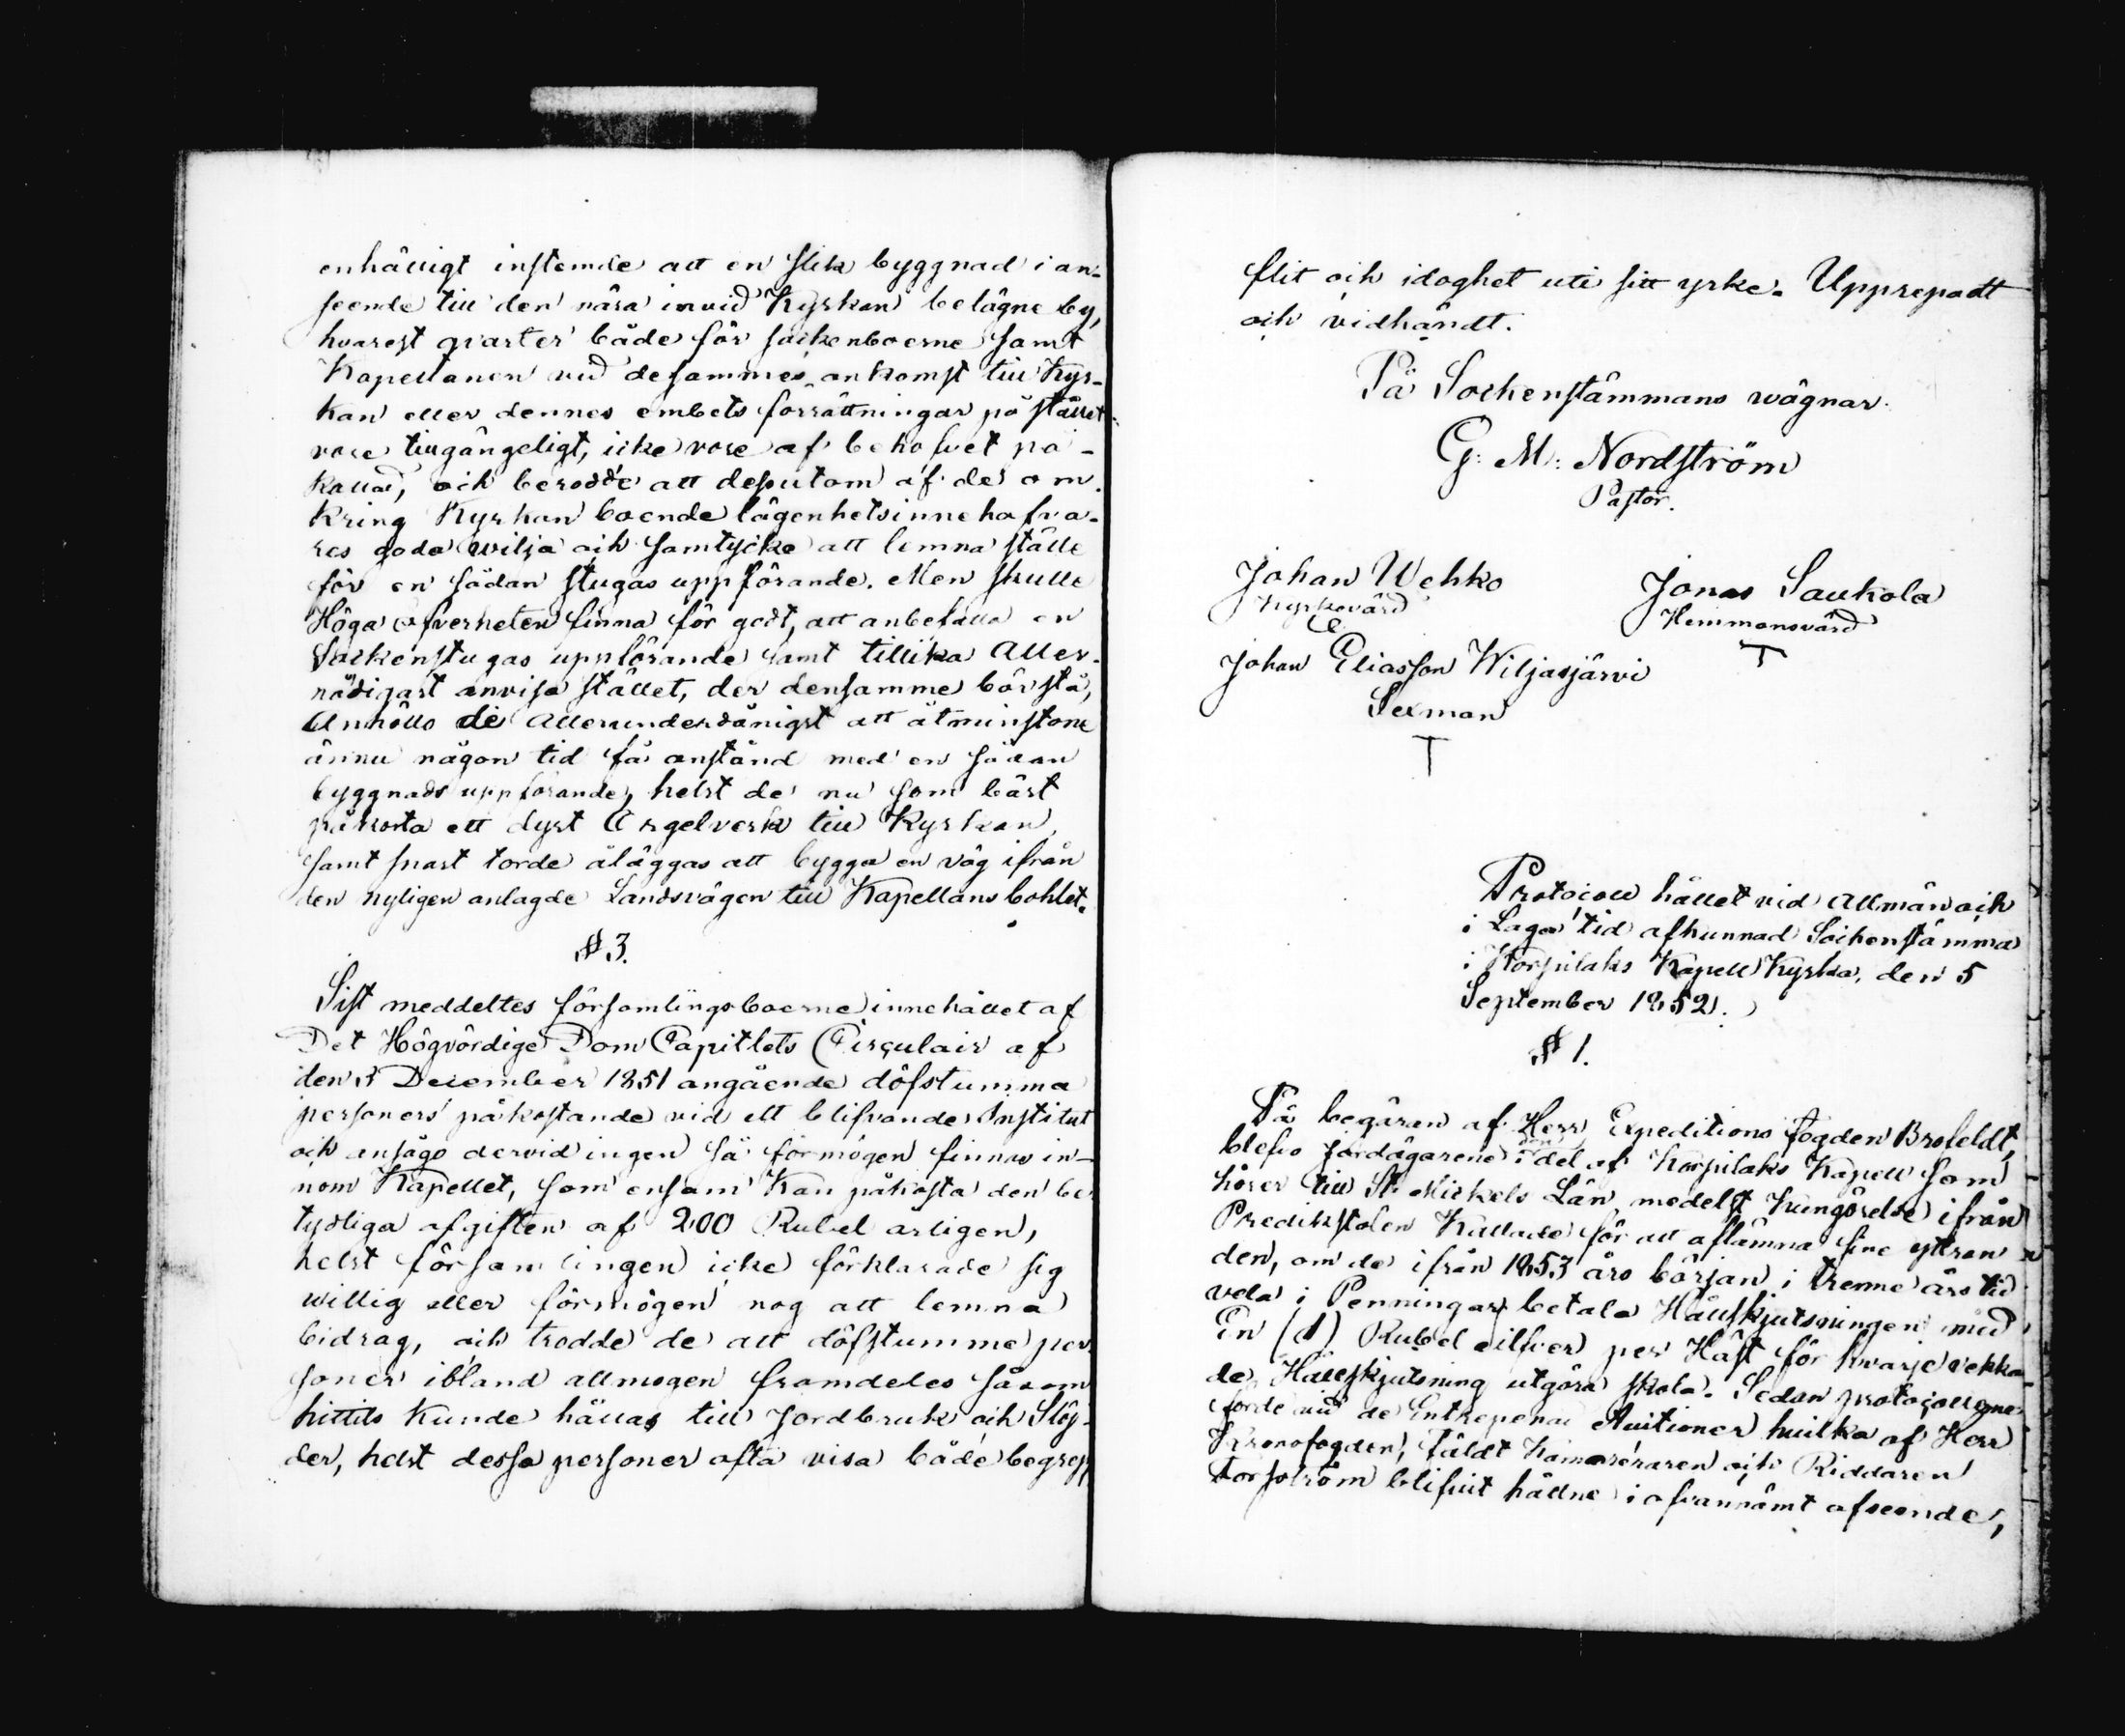 enhälligt instemde att en slik byggnad i an-
seende till den nära invid Kyrkan belägne by,
hvarest qvarter både för sockenboerne samt
Kapellanen vid desammes ankomst till Kyr-
kan eller dennes embets förrättningar på stället
vore tillgängeligt, icke vore af behofvet på-
kallad, och berodde att dessutom af de om
kring Kyrkan boende lägenhetsinnehafva-
res goda wilja och samtycke att lemna ställe
för en sådan stugas uppförande. Men skulle
Höga Öfverheten finna för godt, att anbefalla en
Sockenstugas uppförande samt tillika Aller-
nådigast anvisa stället, der densamme bör stå,
Anhöllo de Allerunderdånigst att åtminstone
ännu någon tid få anstånd med en sådan
byggnads uppförande, helst de nu som bäst
påkosta ett dyrt Orgelverk till Kyrkan,
samt snart torde åläggas att bygga en väg ifrån
den nyligen anlagde Landsvägen till Kapellans bohlet.
§ 3.
Sist meddeltes församlingsboerne innehållet af
Det Högvördige Dom Capitlets Circulair af
den 3 December 1851 angående döfstumma
personers påkostande vid ett blifvande Institut
och ansågs dervid ingen så förmögen finnas in-
nom Kapellet, som ensam kan påkosta den be-
tydliga afgiften af 200 Rubel årligen,
helst församlingen icke förklarade sig
willig eller förmögen nog att lemna
bidrag, och trodde de att döfstumme per
soner ibland allmogen framdeles såsom
hittils kunde hållas till Jordbruk och Slöj-
der, helst dessa personer ofta visa både begrepp
flit och idoghet uti sitt yrke. Upprepadt
och vidhändt.
På Sockenstämmans wägnar
G: M: Nordström
Pastor.
Johan Wehko
Kyrkovärd
Jonas Saukola
Hemmansvärd
Johan Eliasson Wiljasjärvi
Sexman
Protocoll hållet vid Allmän och
i Laga tid afkunnad Sockenstämma
i Korpilaks Kapell Kyrka, den 5
September 1852.
§ 1.
På begäran af Herr Expeditions fogden Brofeldt,
blefvo Jordägarene i den del af Korpilaks Kapell som
hörer till St. Michels Län medelst kungörelse ifrån
Predikstolen kallade för att aflämna sine yttran
den, om de ifrån 1853 års början i trenne års tid
vela i Penningar betala Hållskjutsningen med
En (1) Rubel silfver per Häst för hvarje vekka
de Hållskjutsning utgöra skola. Sedan protocollerne
förde vid de Entreprenad Auctioner hvilka af Herr
Kronofogden, Fäldt Kamereraren och Riddaren
Forsström blifvit hållne i ofvannämt afseende,